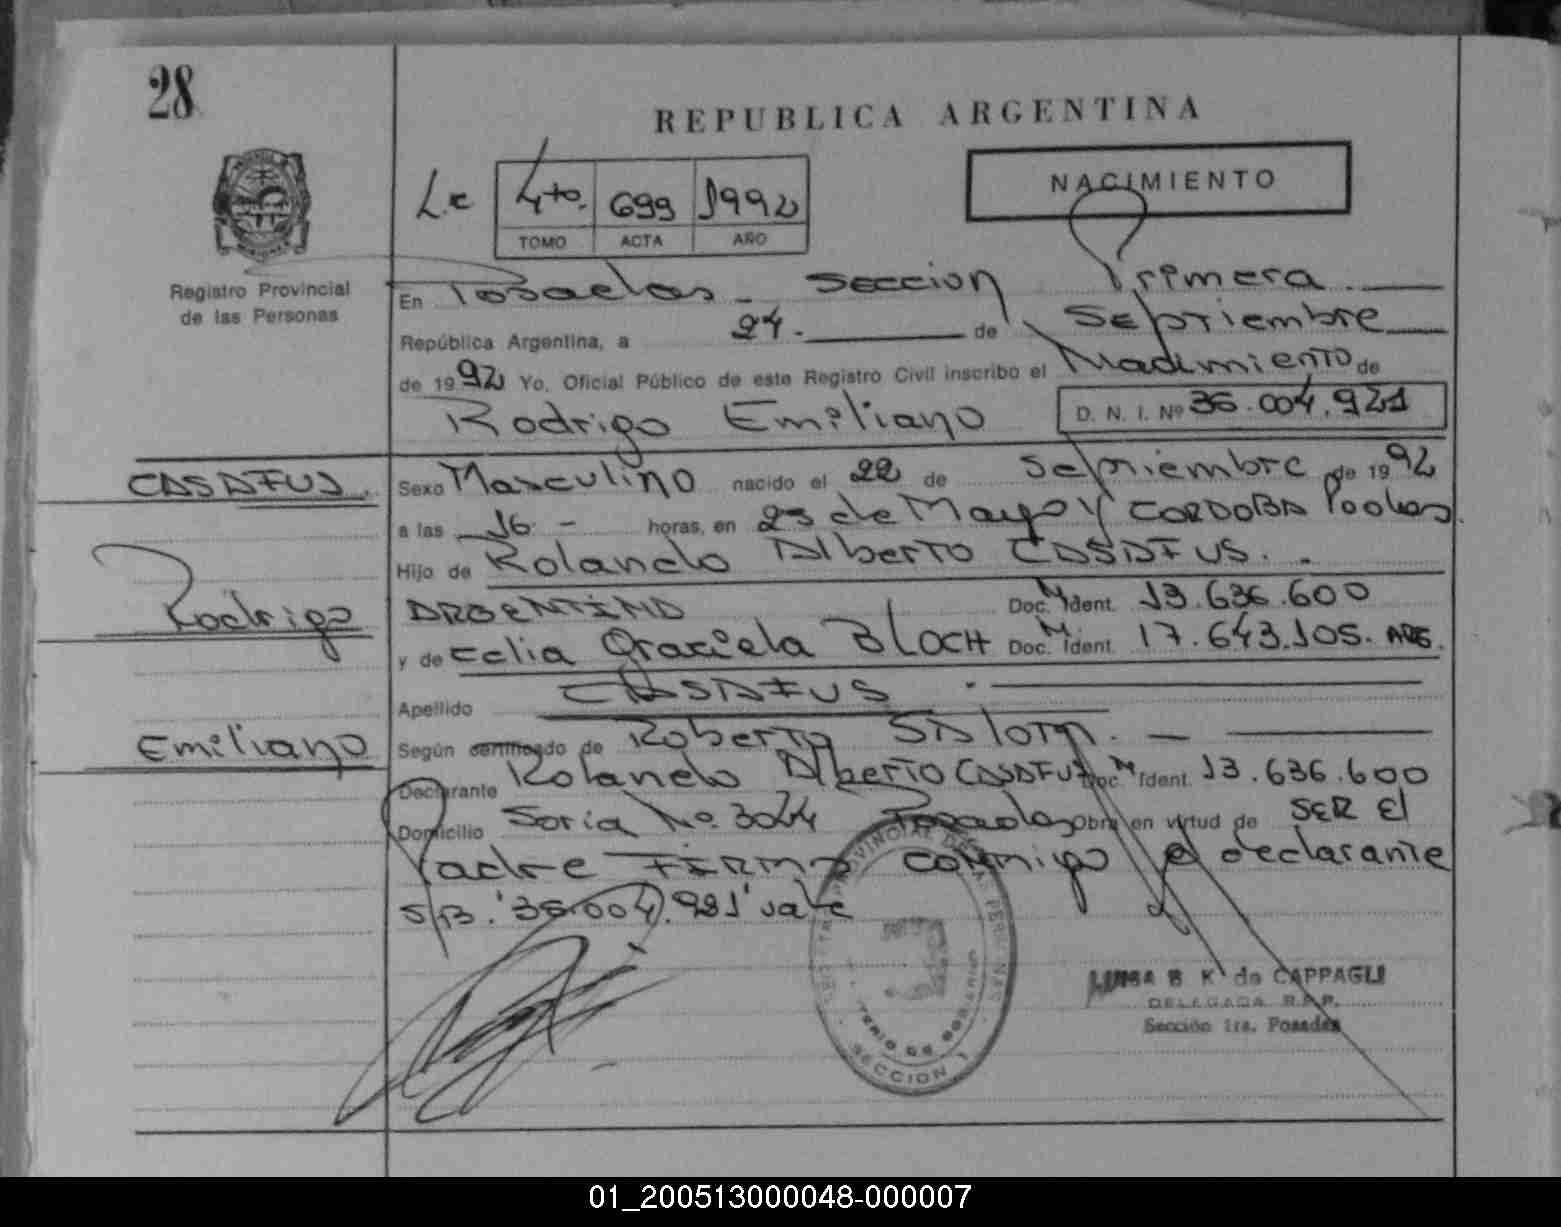 28
REPUBLICA ARGENTINA
NACIMIENTO
L.c 4to. 699 1992
TOMO ACTA AÑO
Registro Provincial
de las Personas
En Posadas - Seccion Primera
República Argentina, a 24.- de Septiembre
de 1992 Yo, Oficial Público de este Registro Civil inscribo el Nacimiento de
Rodrigo Emiliano D. N. I. Nº 36.004.921
CASAFUS.
Sexo Masculino nacido el 22 de Septiembre de 1992
a las 16 - horas, en 25 de Mayo y CORDOBA Posadas.
Hijo de Rolando Alberto CASAFUS. -
Rodrigo
ARGENTINO Doc. Ident. M 13.636.600
y de Celia Graciela BLOCH Doc. Ident. M 17.643.105. ARG.
Apellido CASAFUS -
Emiliano
Según certificado de Roberto SAlom. -
Declarante Rolando Alberto CASAFUS Doc. Ident. M 13.636.600
Domicilio Soria Nº 3044 Posadas Obra en virtud de SER El
Padre FIRMA conmigo el declarante
S/B. "36.004.921" vale
REGISTRO PROVINCIAL DE LAS PERSONAS
MINISTERIO DE GOBIERNO
SECCION 1
LUISA B K de CAPPAGLI
DELEGADA R.P.P.
Sección 1ra. Posadas
01_200513000048-000007